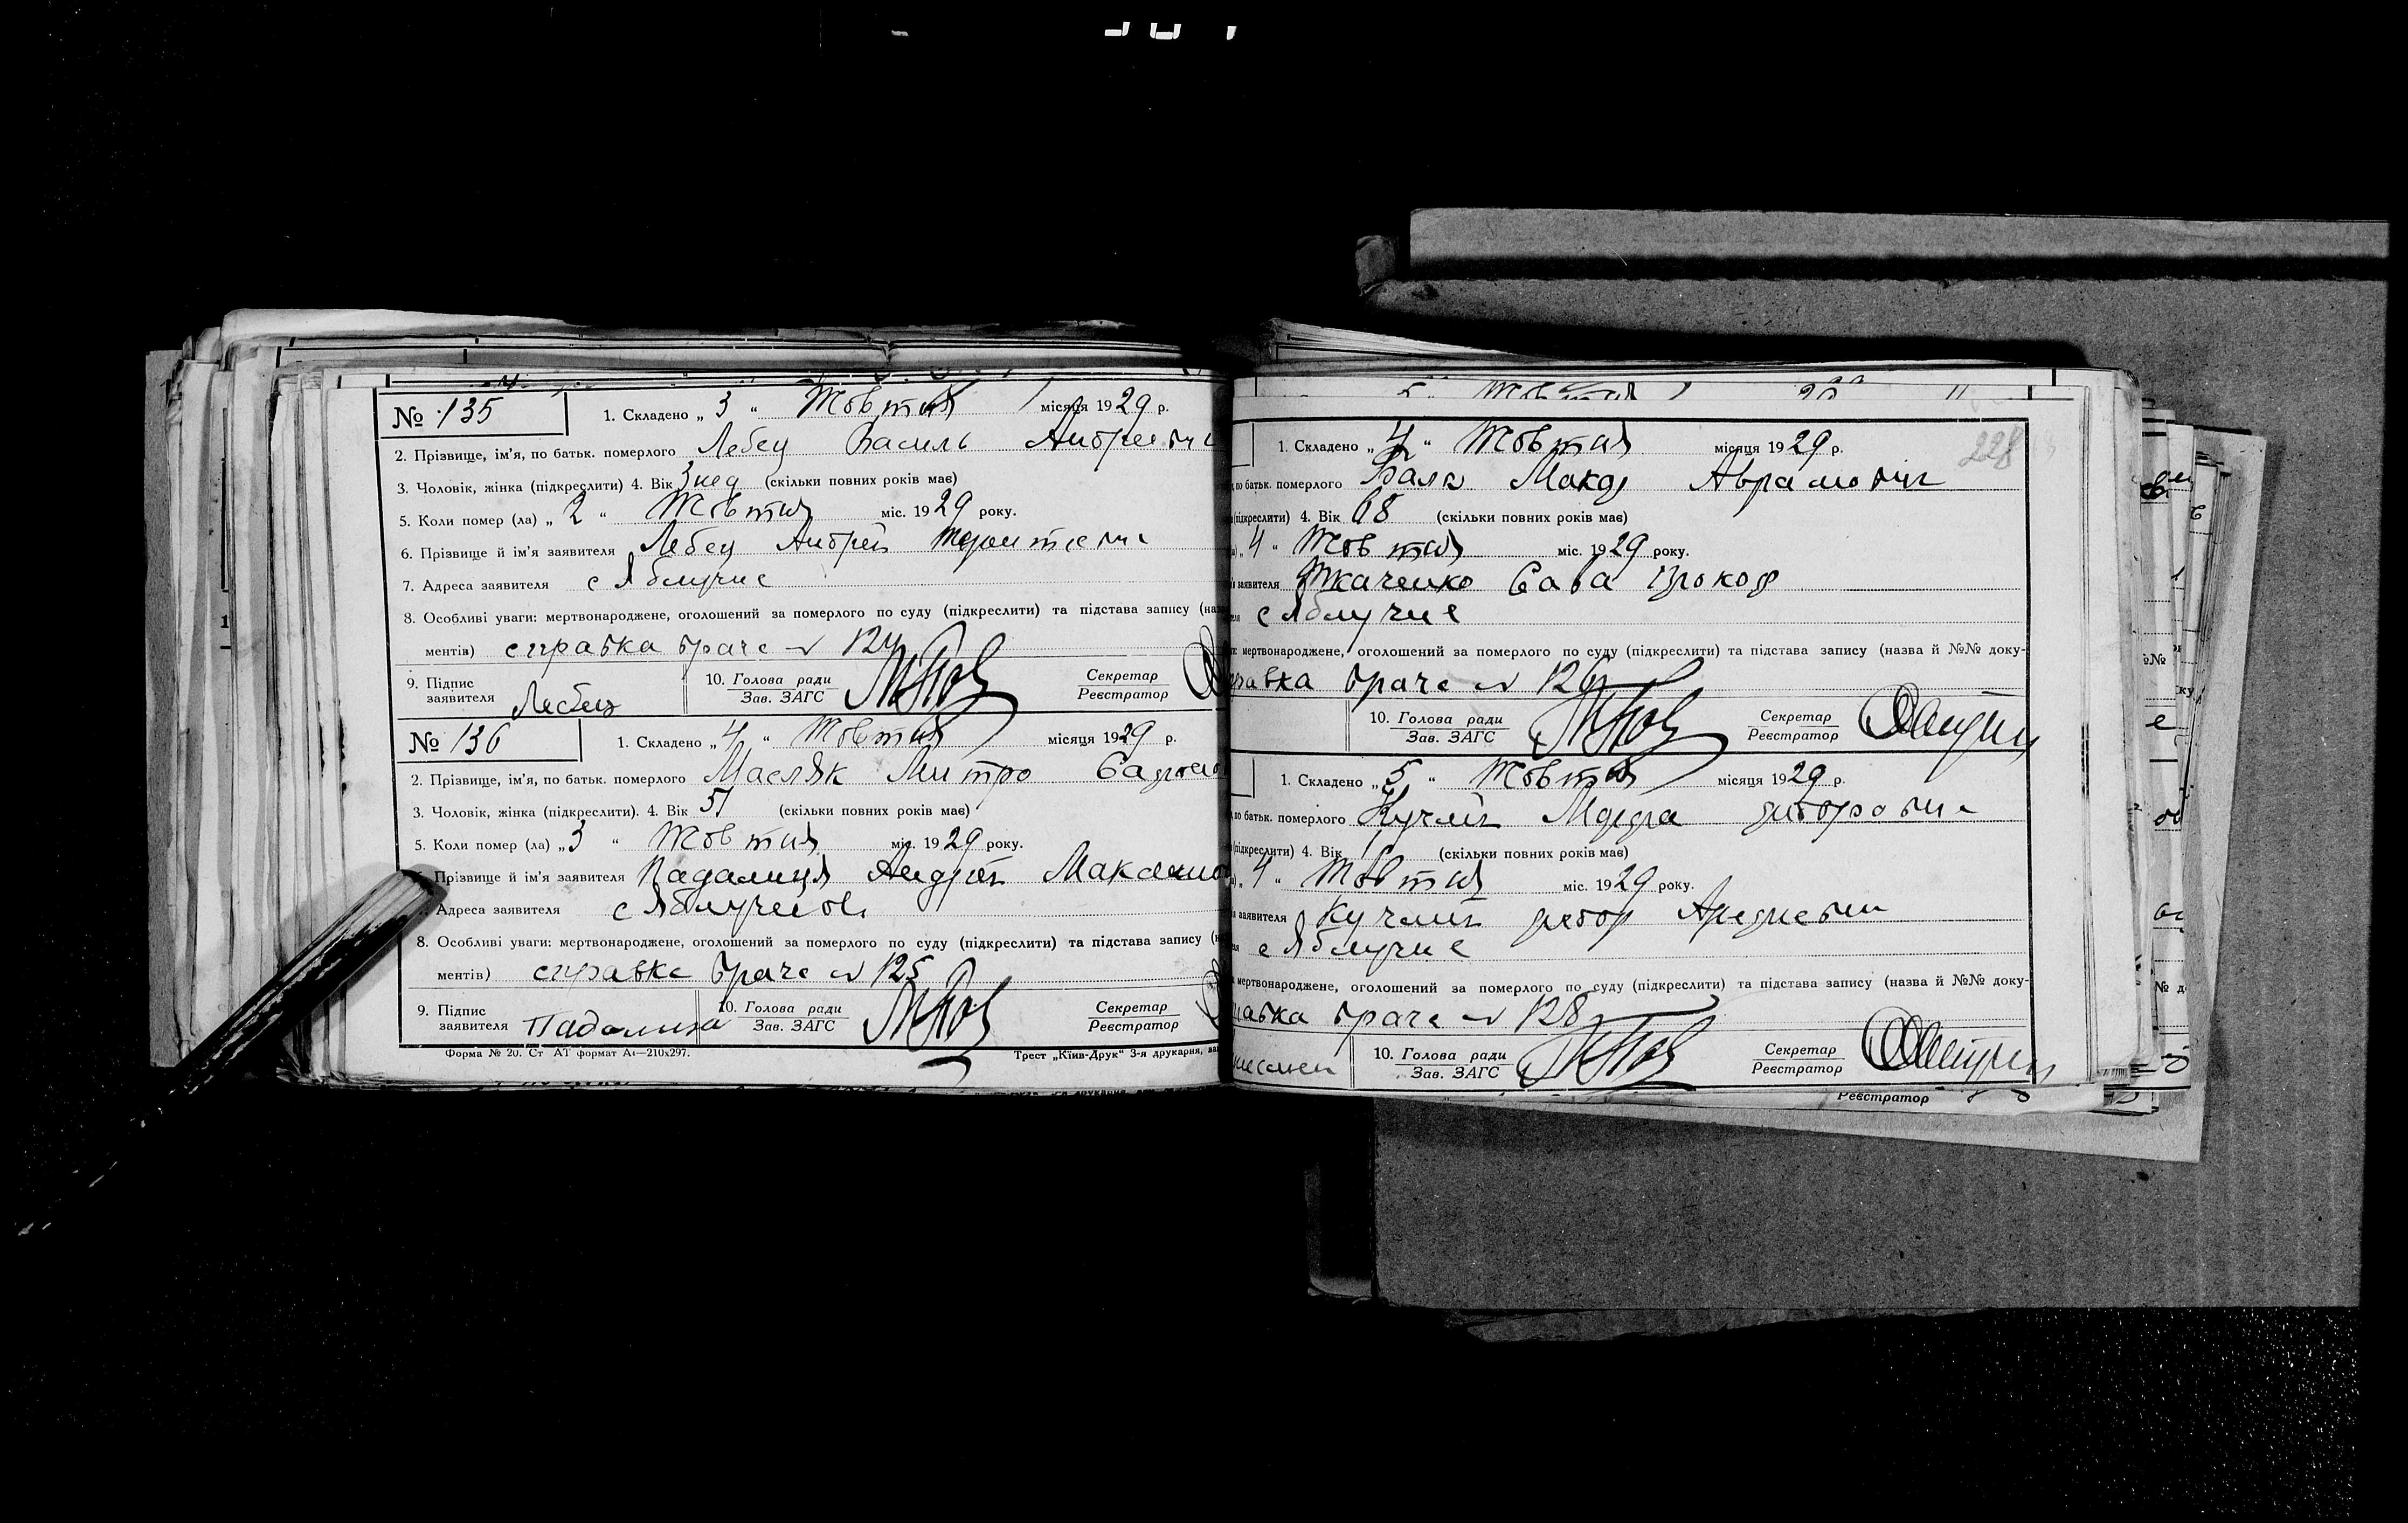 № 135
1. Складено „ 3 “ Жовтня місяця 1929 р.
2. Прізвище, ім'я, по батьк. померлого Лебец Василь Андреевич
3. Чоловік, жінка (підкреслити) 4. Вік 3 нед (скільки повних років має)
5. Коли помер (ла) „ 2 “ Жовтня міс. 1929 року.
6. Прізвище й ім'я заявителя Лебец Андрей
7. Адреса заявителя с Яблучне
8. Особливі уваги: мертвонароджене, оголошений за померлого по суду (підкреслити) та підстава запису
ментів) справка врача № 124
9. Підпис заявителя Лебец
10. Голова ради
Зав. ЗАГС
Секретар
Реєстратор
№ 136
1. Складено „ 4 “ Жовтня місяця 1929 р.
2. Прізвище, ім'я, по батьк. померлого Масляк Митро
3. Чоловік, жінка (підкреслити). 4. Вік 51 (скільки повних років має)
5. Коли помер (ла) „ 3 “ Жовтня міс. 1929 року.
Прізвище й ім'я заявителя Падалиця Андрій
Адреса заявителя с
8. Особливі уваги: мертвонароджене, оголошений за померлого по суду (підкреслити) та підстава запису
ментів) справка врача № 125
9. Підпис заявителя Падалица
10. Голова ради
Зав. ЗАГС
Секретар
Реєстратор
Форма № 20. Ст АТ формат А4—210х297.
Трест „Київ-Друк“ 3-я друкарня,
228
1. Складено „ 4 “ Жовтня місяця 1929 р.
по батьк. померлого Аврамович
(підкреслити) 4. Вік 68 (скільки повних років має)
„ 4 “ Жовтня міс. 1929 року.
заявителя Ткаченко Сава Прокоф
с Яблучне
мертвонароджене, оголошений за померлого по суду (підкреслити) та підстава запису (назва й №№ доку-
врача № 126
10. Голова ради
Зав. ЗАГС
Секретар
Реєстратор
1. Складено „ 5 “ Жовтня місяця 1929 р.
по батьк. померлого
(підкреслити) 4. Вік (скільки повних років має)
„ 4 “ Жовтня міс. 1929 року.
заявителя
с Яблучне
мертвонароджене, оголошений за померлого по суду (підкреслити) та підстава запису (назва й №№ доку-
врача № 128
10. Голова ради
Зав. ЗАГС
Секретар
Реєстратор
Реєстратор